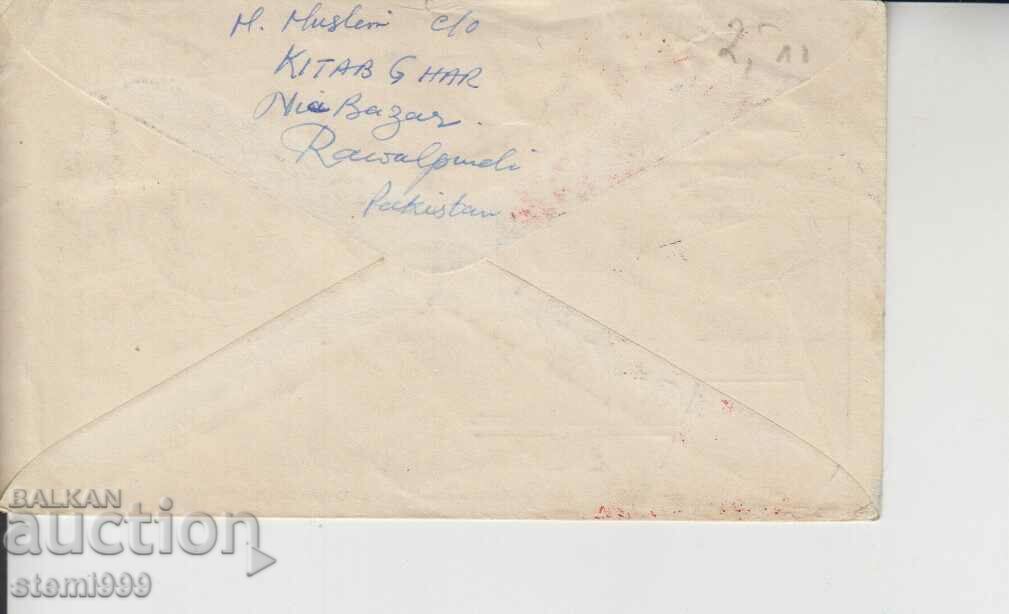 M. Muslim c/o
KITAB GHAR
Nia Bazar.
Rawalpindi
Pakistan
BALKAN
auction
stemi999